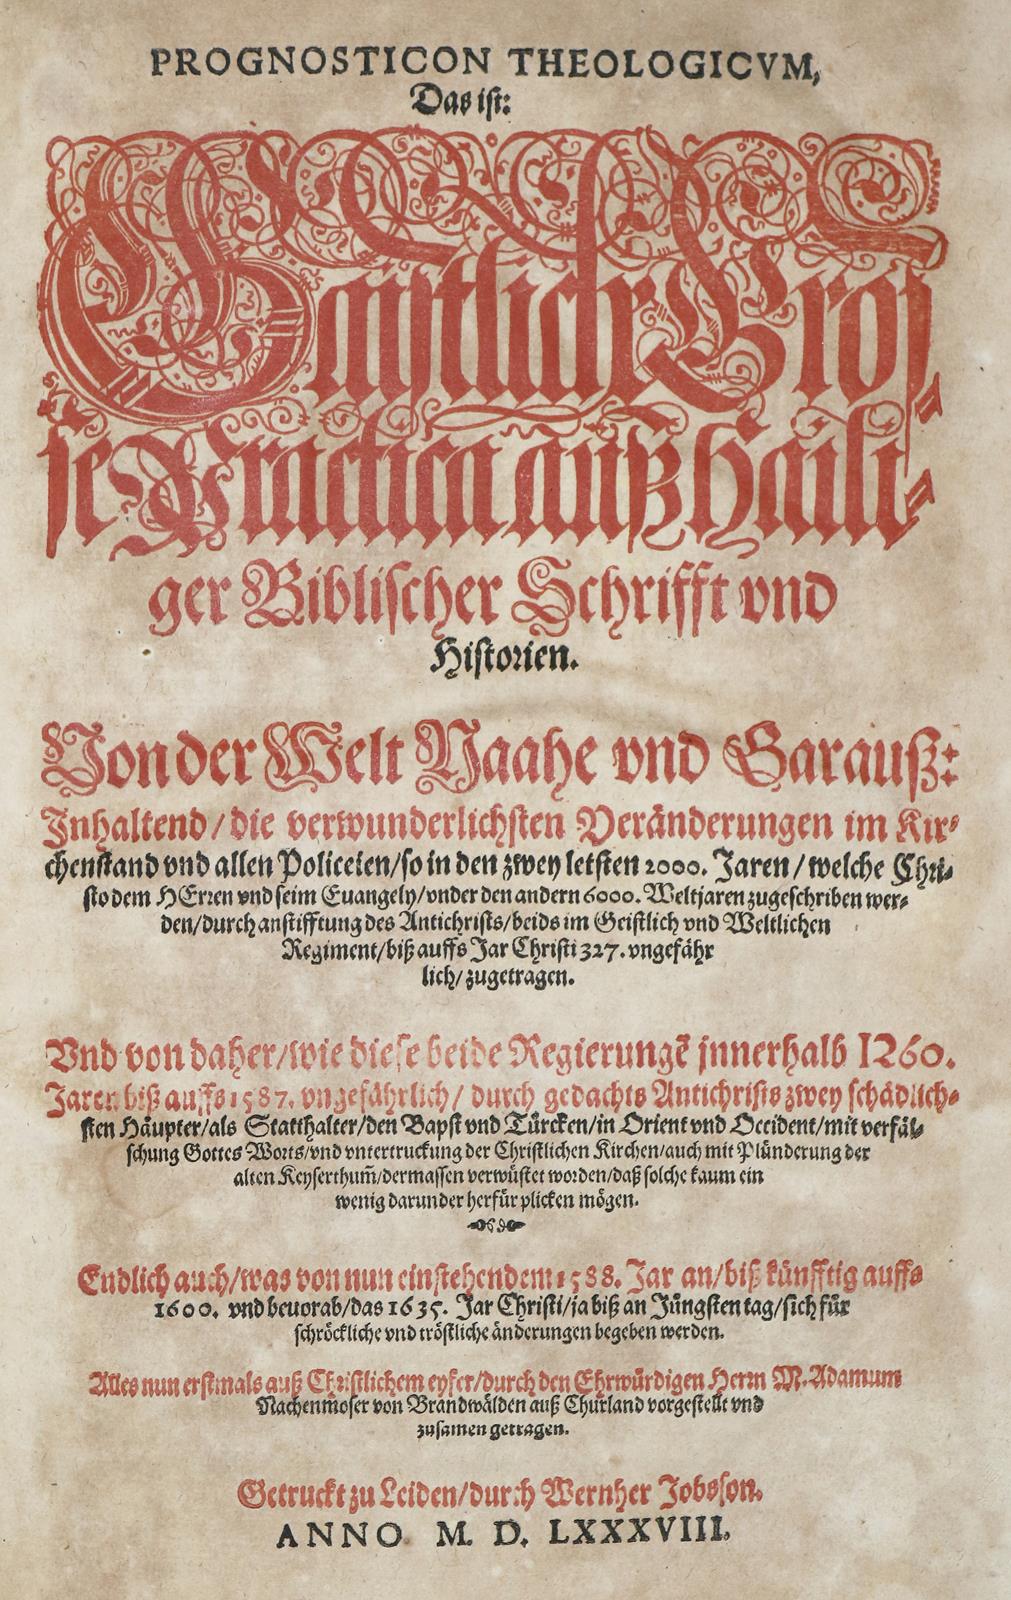 PROGNOSTICON THEOLOGICVM,
Das ist:
Gaistliche Gros-
se Practica auß haili-
ger Biblischer Schrifft vnd
Historien.
Von der Welt Naahe vnd Garauß:
Inhaltend/die verwunderlichsten Veränderungen im Kir-
chenstand vnd allen Policeien/so in den zwey letsten 2000. Jaren/welche Chri-
sto dem HErren vnd seim Euangely/vnder den andern 6000. Weltjaren zugeschriben wer-
den/durch anstifftung des Antichrists/beids im Geistlich vnd Weltlichen
Regiment/biß auffs Jar Christi 327. vngefähr
lich/zugetragen.
Vnd von daher/wie diese beide Regierungē jnnerhalb 1260.
Jaren biß auffs 1587. vngefährlich/durch gedachts Antichrists zwey schädlich-
sten Häupter/als Statthalter/den Bapst vnd Türcken/in Orient vnd Occident/mit verfäl-
schung Gottes Worts/vnd vntertruckung der Christlichen Kirchen/auch mit Plünderung der
alten Keyserthum̄/dermassen verwüstet worden/daß solche kaum ein
wenig darunder herfür plicken mögen.
Endlich auch/was von nun einstehendem 1588. Jar an/biß künfftig auffs
1600. vnd beuorab/das 1635. Jar Christi/ja biß an Jüngsten tag/sich für
schröckliche vnd tröstliche änderungen begeben werden.
Alles nun erstmals auß Christlichem eyfer/durch den Ehrwürdigen Herrn M. Adamum
Nachenmoser von Brandwälden auß Churland vorgestellt vnd
zusamen getragen.
Getruckt zu Leiden/durch Wernher Jobsson.
ANNO M. D. LXXXVIII.